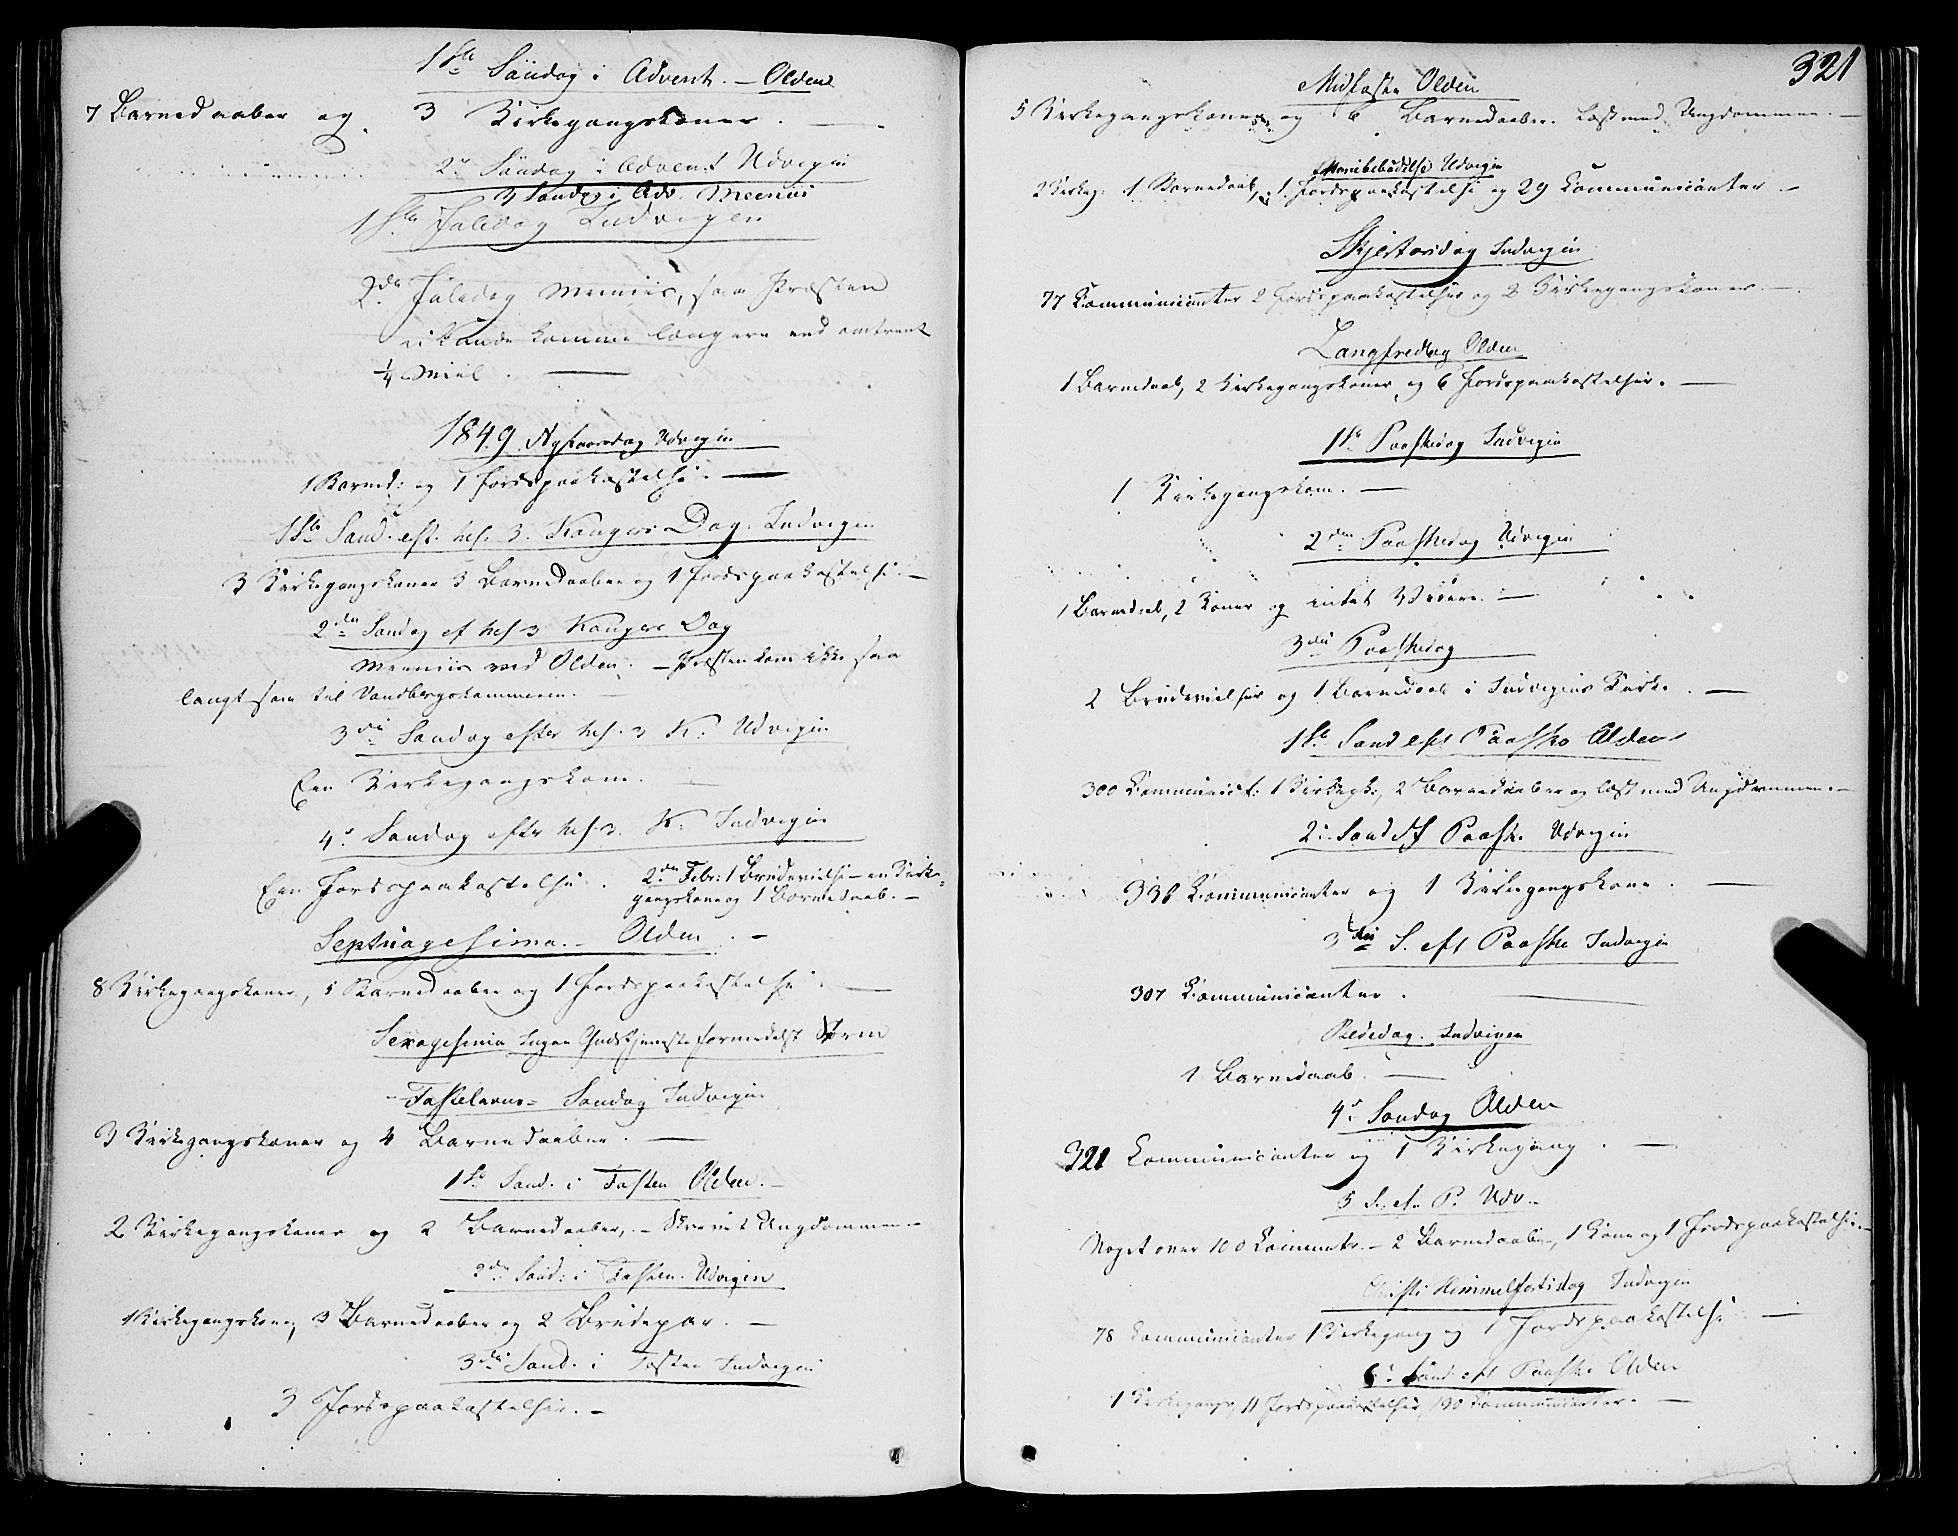 1ste Søndag i Advent. – Olden
7 Barnedaaber og 3 Kirkegangskoner. –
2. Søndag i Advent Udvigen
3 Søndag i Adv. Meenius
1ste Juledag Indvigen
2den Juledag Meenius, saa Præsten
ei kunde komme længere end omtrent
1/4 Miil. –
1849. Nytaarsdag Udvigen
1 Barned: og 1 Jordspaakastelse. –
1ste Sønd. eft. hel. 3. Kongers Dag. Indvigen
3 Kirkegangskoner 3 Barnedaaber og 1 Jordspaakastelse. –
2den Søndag ef hel 3 Kongers Dag
Meeniis ved Olden. – Præsten kom ikke saa
langt som til Vandbergskammeren. –
3die Søndag efter hel. 3 K. Udvigen
Een Kirkegangskone. –
4. Søndag efter hel. 3. K. Indvigen
Een Jordspaakastelse. 2den Febr: 1 Brudevielse – en Kirke-
gangskone og 1 Barnedaab. –
Septuagesima. – Olden. –
8 Kirkegangskoner, 5 Barnedaaber og 1 Jordspaakastelse. –
Sexagesima Ingen Gudstjeneste formedelst Storm
Fastelavns- Søndag Indvigen
3 Kirkegangskoner og 4 Barnedaaber. –
1ste Sønd. i Fasten Olden. –
2 Kirkegangskoner og 2 Barnedaaber, – Skrevet Ungdommen. –
2den Sønd: i Fasten. Udvigen
1 Kirkegangskone, 3 Barnedaaber og 2 Brudepar. –
3die Sønd. i Fasten Indvigen
3 Jordspaakastelser. –
321
Midfaste Olden
5 Kirkegangskoner og 6 Barnedaaber. Læst med Ungdommen. –
Mariæbebudelse Udvigen
2 Kirkeg: 1 Barnedaab, 1. Jordspaakastelse og 29 Communicanter –
Skjertorsdag Indvigen
77 Communicanter 2 Jordspaakastelser og 2 Kirkegangskoner. –
Langfredag Olden
1 Barnedaab, 2 Kirkegangskoner og 6 Jordspaakastelser. –
1ste Paaskedag Indvigen
1 Kirkegangskone. –
2den Paaskedag Udvigen
1 Barnedaab, 2 Koner og intet Videre. –
3die Paaskedag
2 Brudevielser og 1 Barnedaab i Indvigens Kirke. –
1ste Sønd eft Paaske Olden
300 Communict: 1 Kirkegk:, 2 Barnedaaber og læst med Ungdommen. –
2. Sønd eft Paask. Udvigen
336 Communicanter og 1 Kirkegangskone. –
3die S. eft Paaske Indvigen
307 Communicanter. –
Bededag. Indvigen
1 Barnedaab. –
4. Søndag Olden
321 Communicanter og 1 Kirkegang. –
5 S. ef. P. Udv. –
Noget over 100 Communic. – 2 Barnedaaber, 1 Kone og 1 Jordspaakastelse. –
Christi Himmelfartsdag Indvigen
78 Communicanter 1 Kirkegang og 1 Jordspaakastelse –
6. Sønd. eft Paaske Olden
1 Kirkegangs, 11 Jordspaakastelser, 190 Communicanter. –